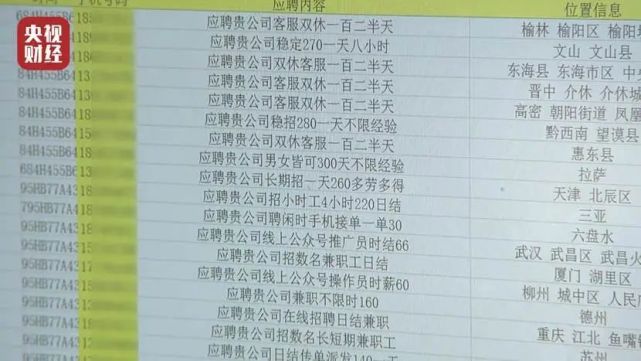 央视财经
手机号码 应聘内容 位置信息
应聘贵公司客服双休一百二半天 榆林 榆阳区
684H455B64 18 应聘贵公司稳定270一天八小时 文山 文山县
应聘贵公司双休客服一百二半天 东海县 东海市区
84H455B64 应聘贵公司客服双休一百二半天 晋中 介休 介休城
84H455B64 应聘贵公司客服双休一百二半天 高密 朝阳街道 凤凰
84H455B64 应聘贵公司稳招280一天不限经验 黔西南 望谟县
84H455B64 应聘贵公司双休客服一百二半天 惠东县
84H455B64 应聘贵公司男女皆可300天不限经验 拉萨
684H455B64 应聘贵公司长期招一天260多劳多得 天津 北辰区
95HB77A43 应聘贵公司招小时工4小时220日结 三亚
795HB77A4 应聘贵公司聘闲时手机接单一单30 六盘水
95HB77A43 应聘贵公司线上公众号推广员时结66 武汉 武昌区
95HB77A43 应聘贵公司招数名兼职工日结 厦门 湖里区
95HB77A43 应聘贵公司线上公众号操作员时薪60 柳州 城中区 人民
95HB77A43 应聘贵公司兼职不限时160 德州
95HB77A43 应聘贵公司在线招聘日结兼职 重庆 江北 鱼嘴
95HB77A43 应聘贵公司招数名长短期兼职工 苏州
应聘贵公司日结传单派发140一天